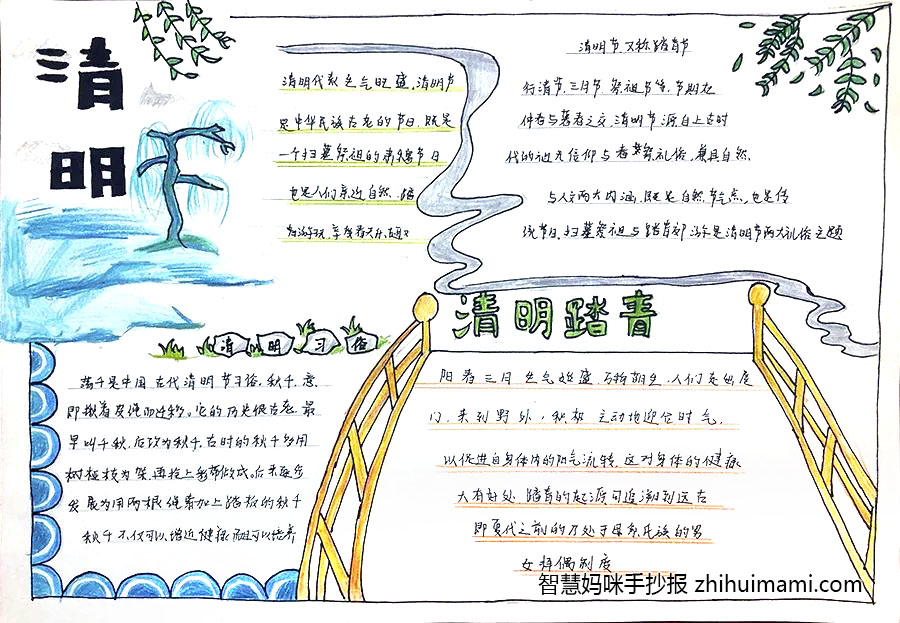 清
明
清明代表生气旺盛,清明节
是中华民族古老的节日,既是
一个扫墓祭祖的肃穆节日
也是人们亲近自然、踏
清明节,又称踏青节
行清节、三月节、祭祖节等,节期在
仲春与暮春之交,清明节源自上古时
代的祖先信仰与春祭礼俗,兼具自然
与人文两大内涵,既是自然节气点,也是传
统节日,扫墓祭祖与踏青郊游是清明节两大礼俗主题
清明习俗
荡千是中国古代清明节习俗,秋千,意
即揪着皮绳而迁移。它的历史很古老,最
早叫千秋,后改为秋千,古时的秋千多用
树桠枝为架,再拴上彩带做成。后来逐步
发展为用两根绳索加上踏板的秋千
秋千不仅可以增进健康,而且可以培养
清明踏青
阳春三月生气旺盛,万物朝夕,人们走出屋
门,来到野外,积极主动地迎合时气,
以促进自身体内的阳气流转,这对身体的健康
大有好处,踏青的起源可追溯到远古
即夏代之前的万处于母系氏族的男
女择偶制度
智慧妈咪手抄报 zhihuimami.com